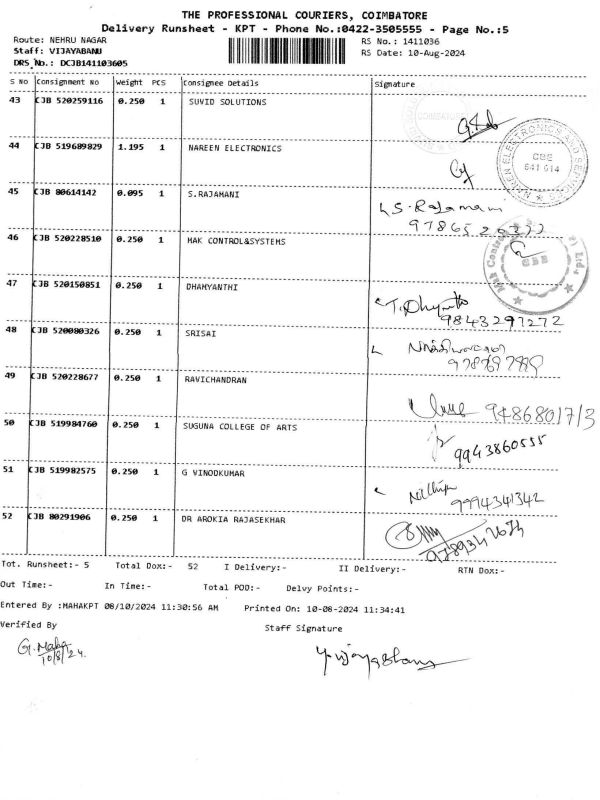 THE PROFESSIONAL COURIERS, COIMBATORE
Delivery Runsheet - KPT - Phone No.:0422-3505555 - Page No.:5
Route: NEHRU NAGAR RS No.: 1411036
Staff: VIJAYABANU RS Date: 10-Aug-2024
DRS No.: DCJB141103605
S No Consignment No Weight PCS Consignee Details Signature
43 CJB 520259116 0.250 1 SUVID SOLUTIONS
44 CJB 519689829 1.195 1 NAREEN ELECTRONICS
CBE
641 014
45 CJB 80614142 0.095 1 S.RAJAMANI
S. Rajamani
46 CJB 520228510 0.250 1 MAK CONTROL&SYSTEMS
47 CJB 520150851 0.250 1 DHAMYANTHI
9843297272
48 CJB 520080326 0.250 1 SRISAI
49 CJB 520228677 0.250 1 RAVICHANDRAN
9486801713
50 CJB 519984760 0.250 1 SUGUNA COLLEGE OF ARTS
9943860555
51 CJB 519982575 0.250 1 G VINODKUMAR
9994341342
52 CJB 80291906 0.250 1 DR AROKIA RAJASEKHAR
Tot. Runsheet:- 5 Total Dox:- 52 I Delivery:- II Delivery:- RTN Dox:-
Out Time:- In Time:- Total POD:- Delvy Points:-
Entered By :MAHAKPT 08/10/2024 11:30:56 AM Printed On: 10-08-2024 11:34:41
Verified By Staff Signature
G. Maha
10/8/24.